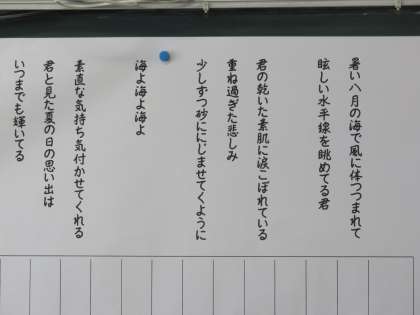 暑い八月の海で風に体つつまれて
眩しい水平線を眺めてる君
君の乾いた素肌に涙こぼれている
重ね過ぎた悲しみ
少しずつ砂ににじませてくように
海よ海よ海よ
素直な気持ち気付かせてくれる
君と見た夏の日の思い出は
いつまでも輝いてる